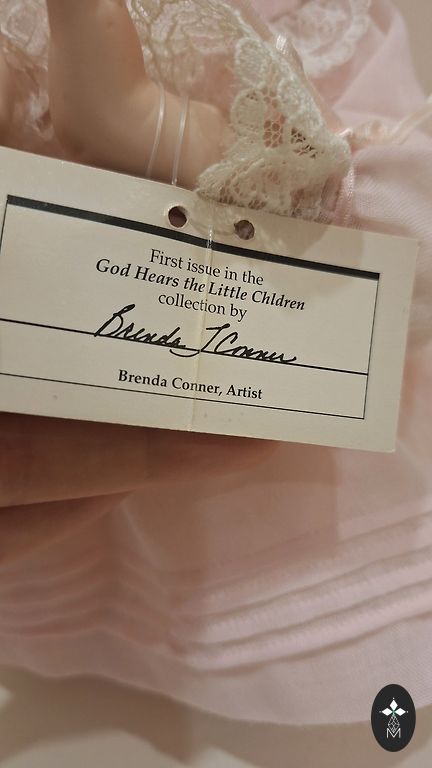 First issue in the
God Hears the Little Chldren
collection by
Brenda J Conner
Brenda Conner, Artist
M